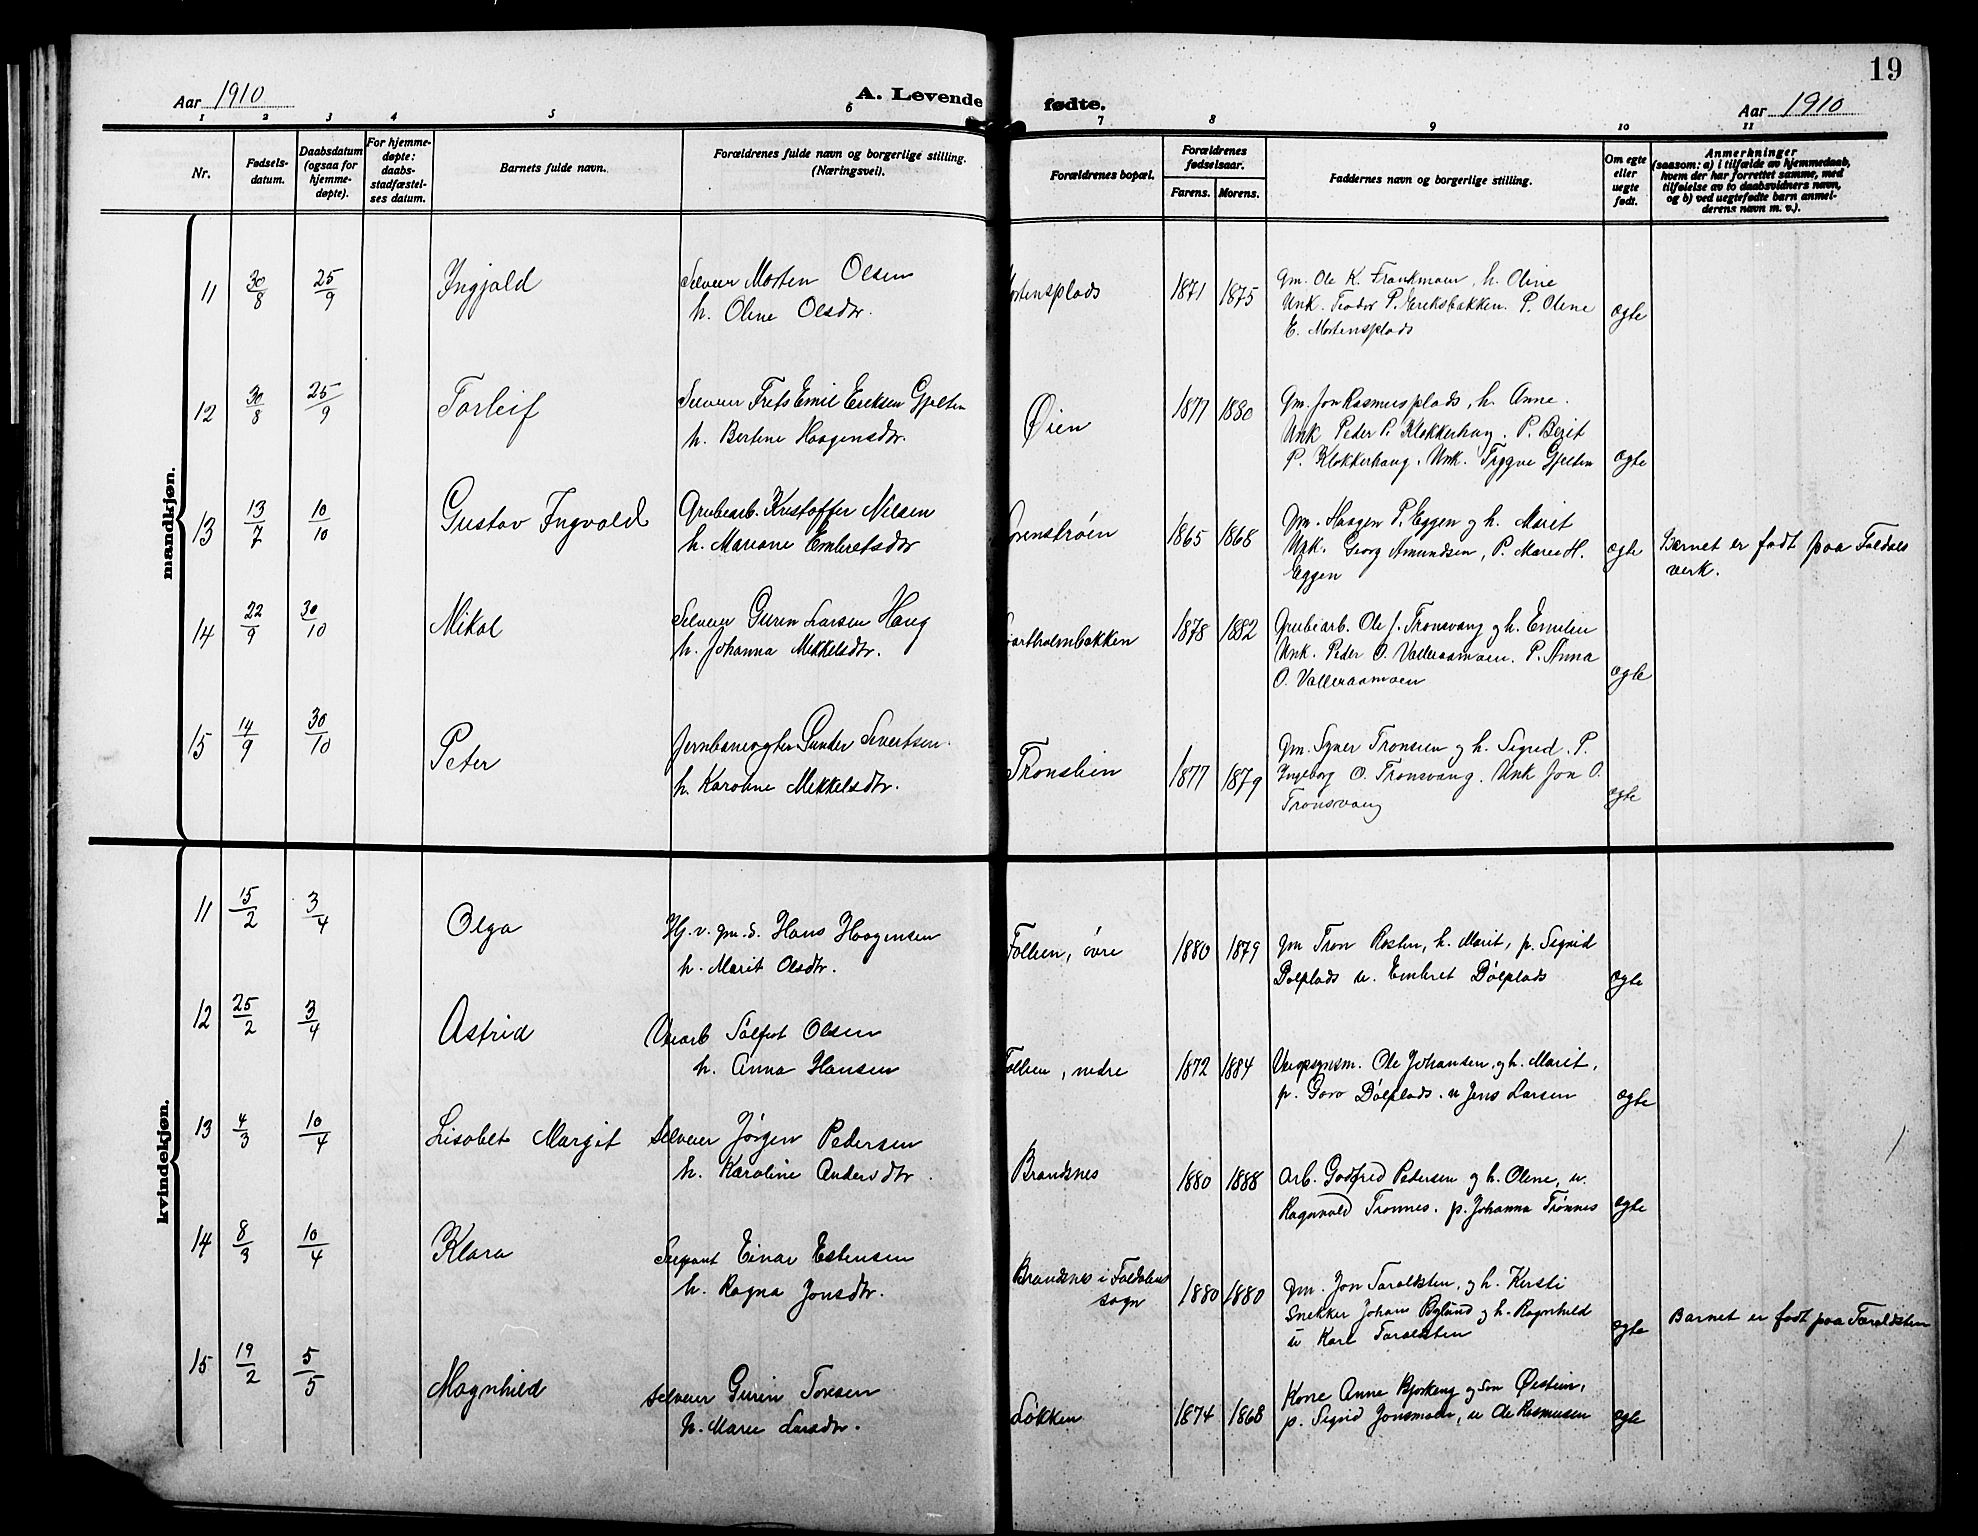 19
Aar 1910
A. Levende fødte.
Aar 1910
1 2 3 4 5 6 7 8 9 10 11
Nr.
Fødsels-
datum.
Daabsdatum
(ogsaa for
hjemme-
døpte).
For hjemme-
døpte:
daabs-
stadfæstel-
ses datum.
Barnets fulde navn.
Forældrenes fulde navn og borgerlige stilling.
(Næringsvei).
Forældrenes bopæl.
Forældrenes
fødselsaar.
Farens. Morens.
Faddernes navn og borgerlige stilling.
Om egte
eller
uegte
født.
Anmerkninger
(saasom: a) i tilfælde av hjemmedaab,
hvem der har forrettet samme, med
tilføielse av to daabsvidners navn,
og b) ved uegtefødte barn anmel-
derens navn m. v.).
mandkjøn.
11 30/8 25/9 Ingjald
Selveier Morten Olsen
h. Oline Olsdtr.
Mortensplads 1871 1875
Gm. Ole K. Frankmoen, h. Oline
Unk. Teodor P. Eriksbakken. P. Olene
E. Mortensplads
egte
12 30/8 25/9 Torleif
Selveier Frits Emil Eriksen Gjelten
h. Bertine Haagensdtr.
Øien 1877 1880
Gm. Jon Rasmusplads, h. Anne.
Unk Peder P. Klokkerhaug. P. Berit
P. Klokkerhaug. Unk. Trygve Gjelten
egte
13 13/7 10/10 Gustav Ingvald
Grubearb. Kristoffer Nilsen
h. Mariane Embretsdtr
Grenstrøen 1865 1868
Gm. Haagen P. Eggen og h. Marit
Unk. Georg Amundsen, P. Maren H.
Eggen
egte
Barnet er født paa Foldals
verk.
14 22/9 30/10 Mikal
Selveier Guren Larsen Haug
h. Johanna Mikkelsdtr.
Svartholmbakken 1878 1882
Grubearb. Ole J. Tronsvang og h. Emilie
Unk. Peder O. Valleraamoen. P. Anna
O. Valleraamoen
egte
15 14/9 30/10 Peter
Jernbanevogter Peder Sivertsen.
h. Karoline Mikkelsdtr.
Tronslien 1877 1879
Gm. Syver Tronslien og h. Sigrid. P.
Ingeborg O. Tronsvang. Unk Jon O.
Tronsvang
egte
kvindekjøn.
11 15/2 3/4 Olga
Hj. v. gm. s. Hans Haagensen
h. Marit Olsdtr.
Follien, øvre 1880 1879
Gm Tron Rosten, h. Marit, p. Sigrid
Dølplads u. Embret Dølplads
egte
12 25/2 3/4 Astrid
Veiarb Sølfest Olsen
h. Anna Hansen
Follien, nedre 1872 1884
Veiopsynsm. Ole Johansen, og h. Marit,
p. Goro Dølplads. u Jens Larsen
egte
13 4/3 10/4 Lisabet Margit
Selveier Jørgen Pedersen
h. Karoline Andersdtr.
Brandsnes 1880 1888
Arb. Godfred Pedersen og h. Olene, u.
Ragnvald Trønnes. p. Johanna Trønnes
egte
14 8/3 10/4 Klara
Sersjant Einar Estensen
h. Ragna Jonsdtr.
Brandsnes i Foldalens
sogn
1880 1880
Gm. Jon Taraldsten, og h. Kersti
Snekker Johans Byglund og h. Ragnhild
u Karl Taraldsten
egte
Barnet er født paa Taraldsten
15 19/2 5/5 Magnhild
Selveier Guren Toresen
h. Marie Larsdtr.
Løkken 1874 1868
Kone Anne Bjørkeng og søn Østein,
p. Sigrid Jonsmoen, u Ole Rasmusen
egte